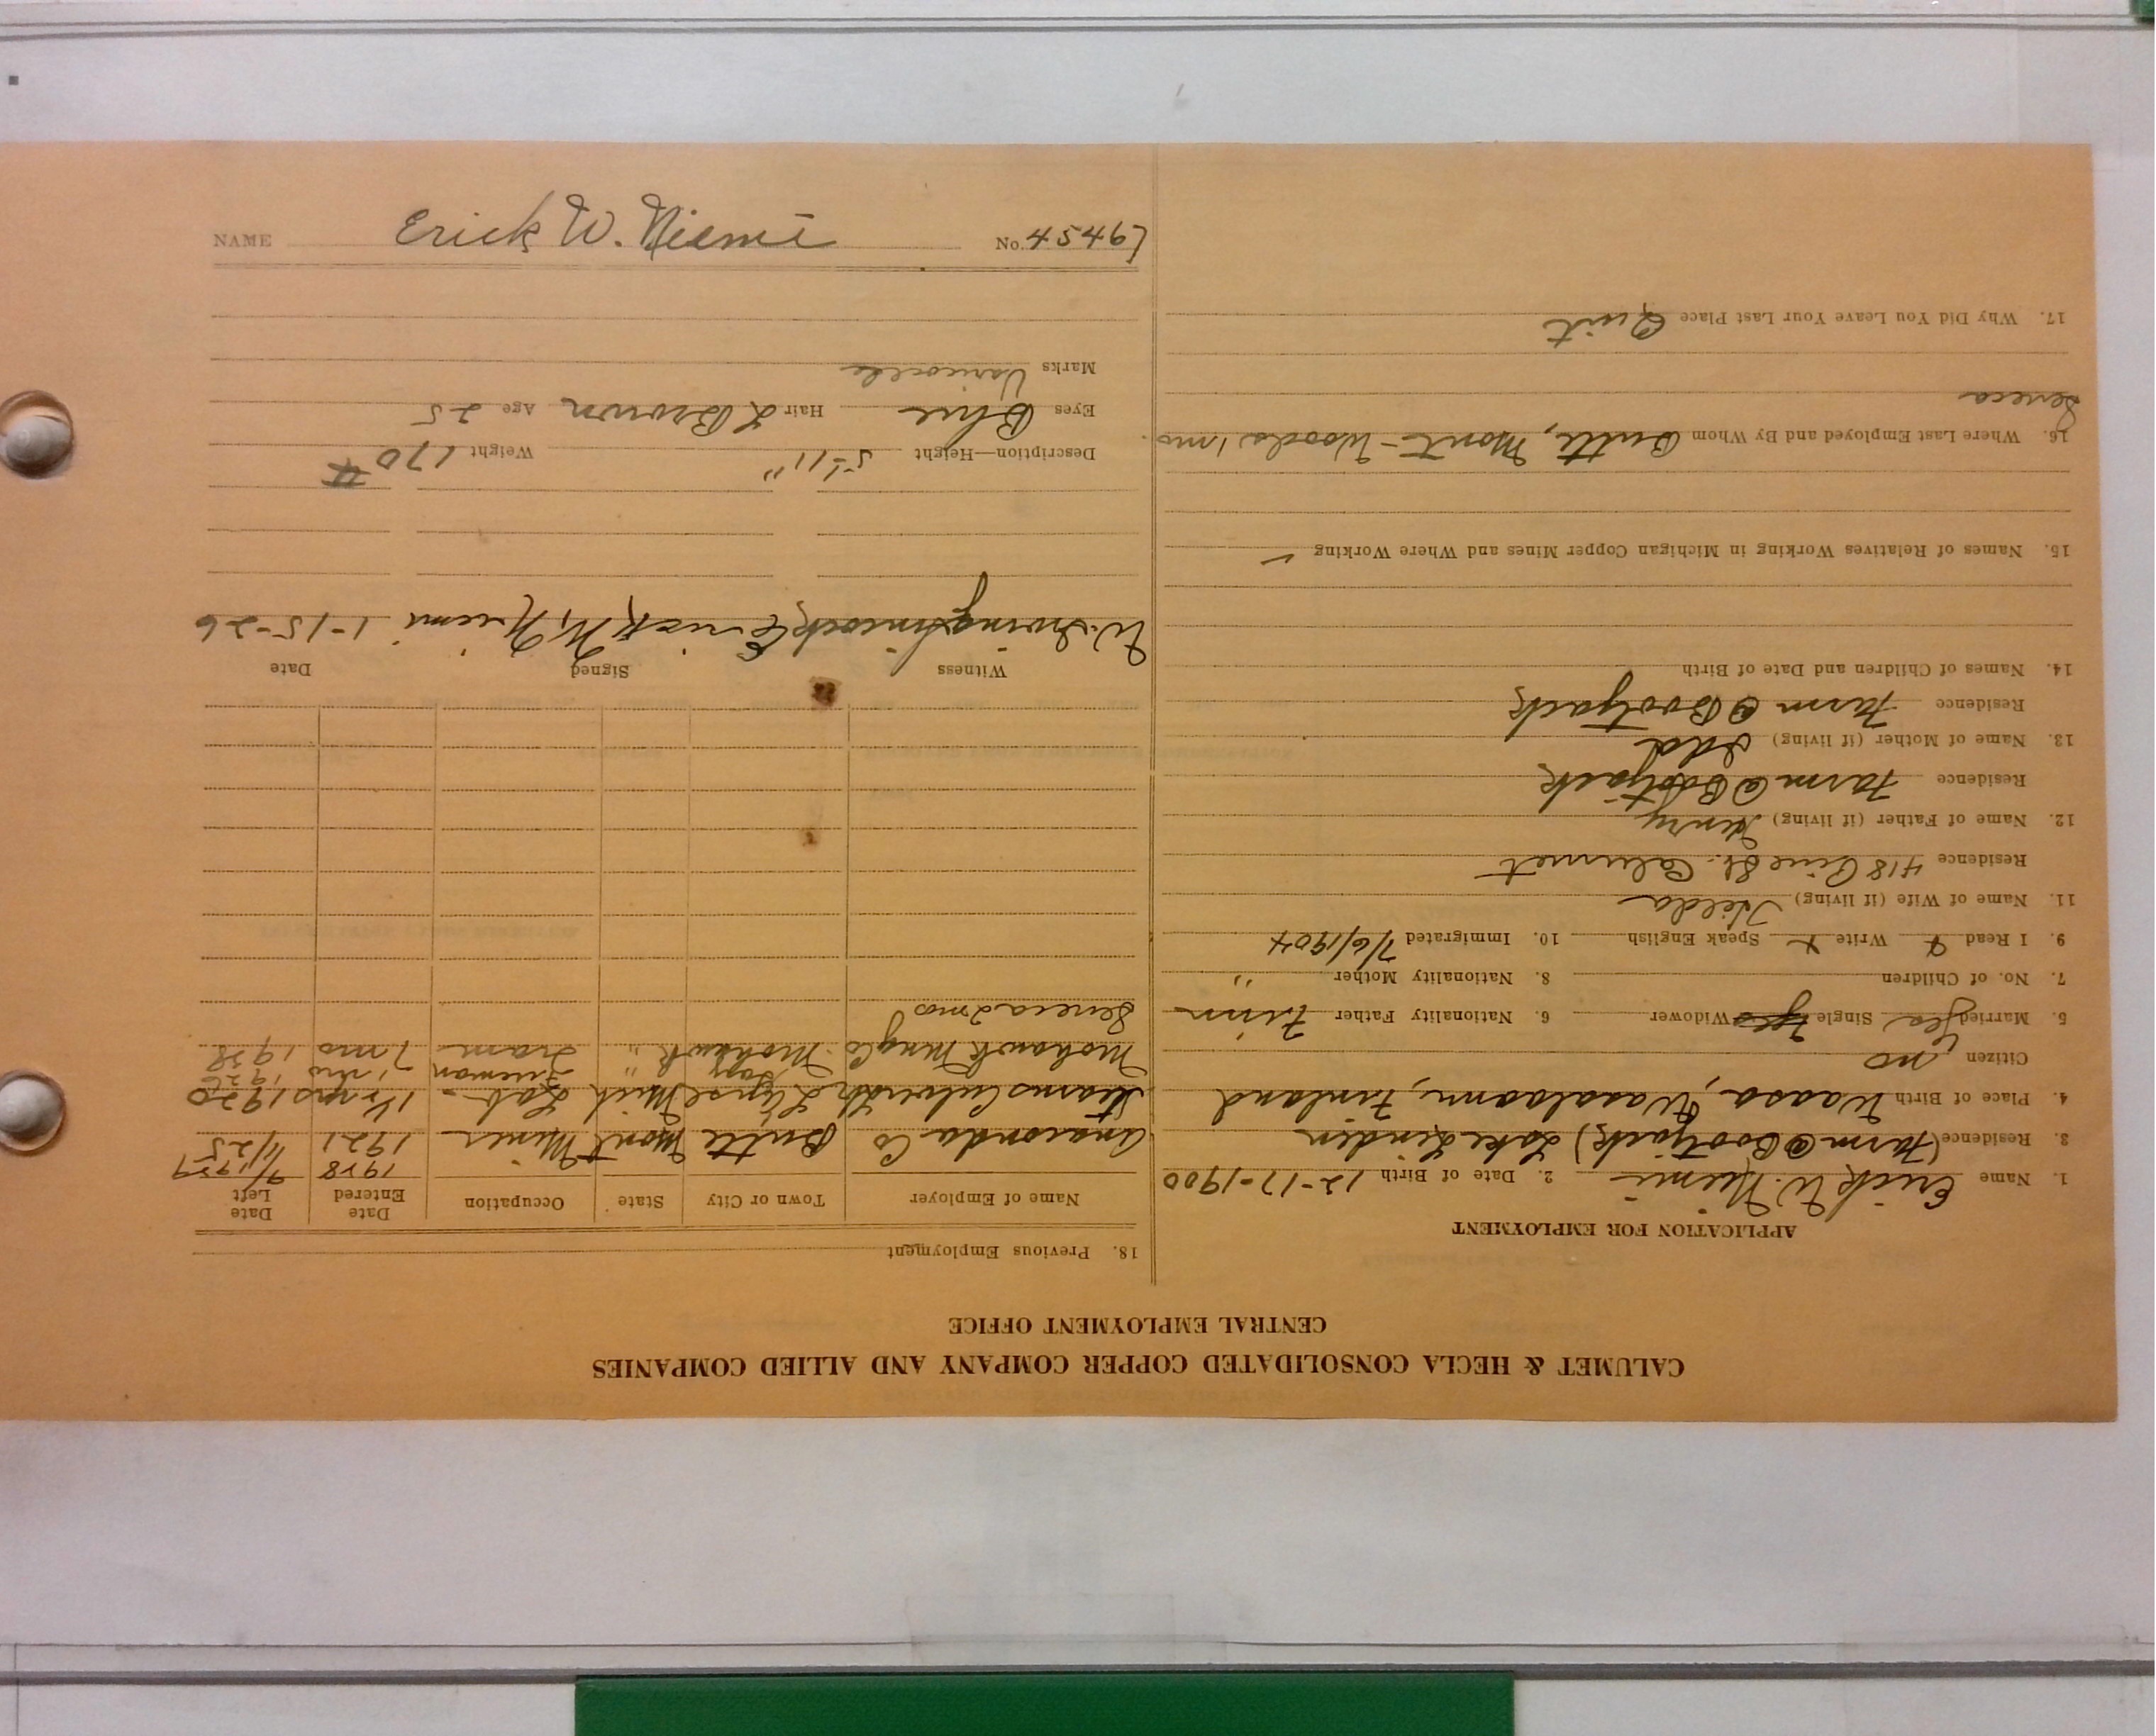 CALUMET & HECLA CONSOLIDATED COPPER COMPANY AND ALLIED COMPANIES
CENTRAL EMPLOYMENT OFFICE
APPLICATION FOR EMPLOYMENT
1. Name Erick W. Niemi 2. Date of Birth 12-17-1900
3. Residence (Farm @ Bootjack) Lake Linden
4. Place of Birth Waasa, Waasalaani, Finland
Citizen no
5. Married Yes Single Yes Widower 6. Nationality Father Finn
7. No. of Children 8. Nationality Mother "
9. I Read Write Speak English 10. Immigrated 7/6/1904
11. Name of Wife (if living) Hilda
Residence 418 Pine St. Calumet
12. Name of Father (if living) Henry
Residence Farm @ Bootjack
13. Name of Mother (if living) Ida
Residence Farm @ Bootjack
14. Names of Children and Date of Birth
15. Names of Relatives Working in Michigan Copper Mines and Where Working
16. Where Last Employed and By Whom Butte, Mont - Woods 1 mo.
Seneca
17. Why Did You Leave Your Last Place Quit
18. Previous Employment
Name of Employer Town or City State Occupation Date Entered Date Left
1928 9/1939
Anaconda Co Butte Mont Miner 1921 11/25
Stearns & Culver L'Anse Mich Lab. 1½ yrs 1920
Fireman 1926
Mohawk Mng Co. Mohawk " Tram 7 mo 1928
Seneca 2 mos
Witness Signed Date
W. Irving Erick W. Niemi 1-15-26
Description—Height 5-11" Weight 170 #
Eyes Blue Hair L Brown Age 25
Marks Varicocele
NAME Erick W. Niemi No. 45467